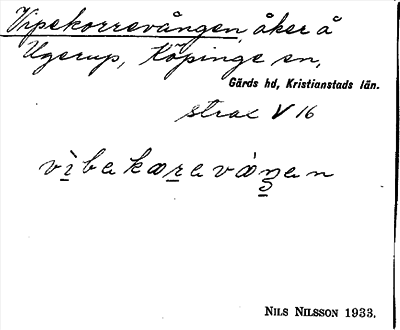 Vipekorrevången, åker å
Ugerup, Köpinge sn,
Gärds hd, Kristianstads län.
strax V 16
NILS NILSSON 1933.